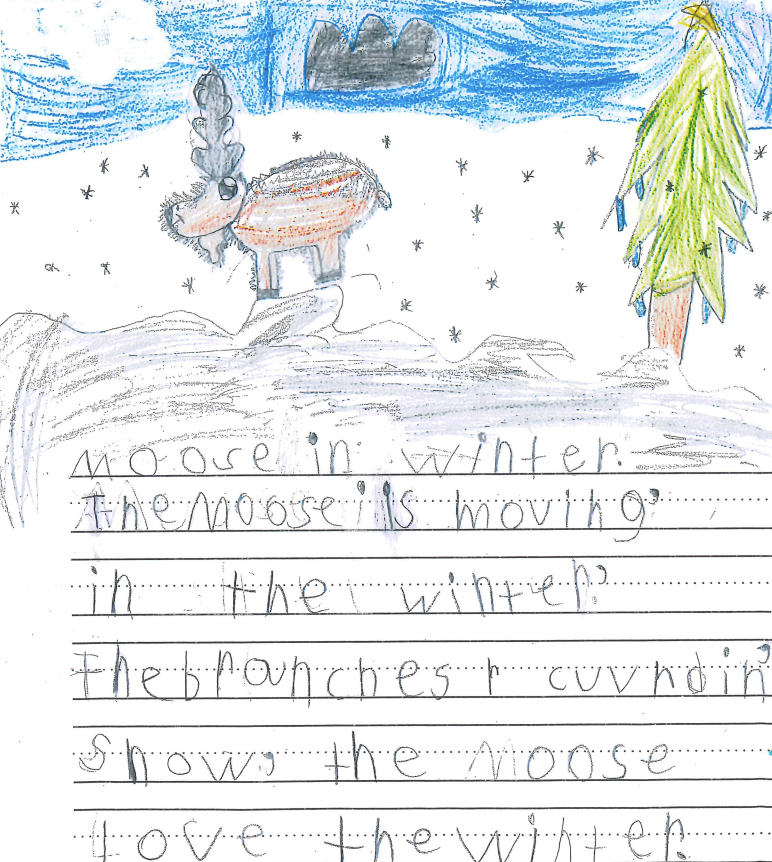 Moose in winter.
The Moose is moving,
in the winter,
The branches r cuvrd in,
Snow, the Moose
love the winter.